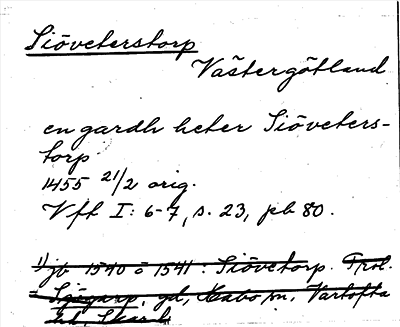 Siöveterstorp
Västergötland
en gardh heter Siöveters-
torp
1455 21/2 orig.
Vft I: 6-7, s. 23, pb 80.
1) jb 1540 o 1541: Siövetorp. Trol.
= Sjögarp, gd, Kabo sn, Vartofta
hd, Skarab